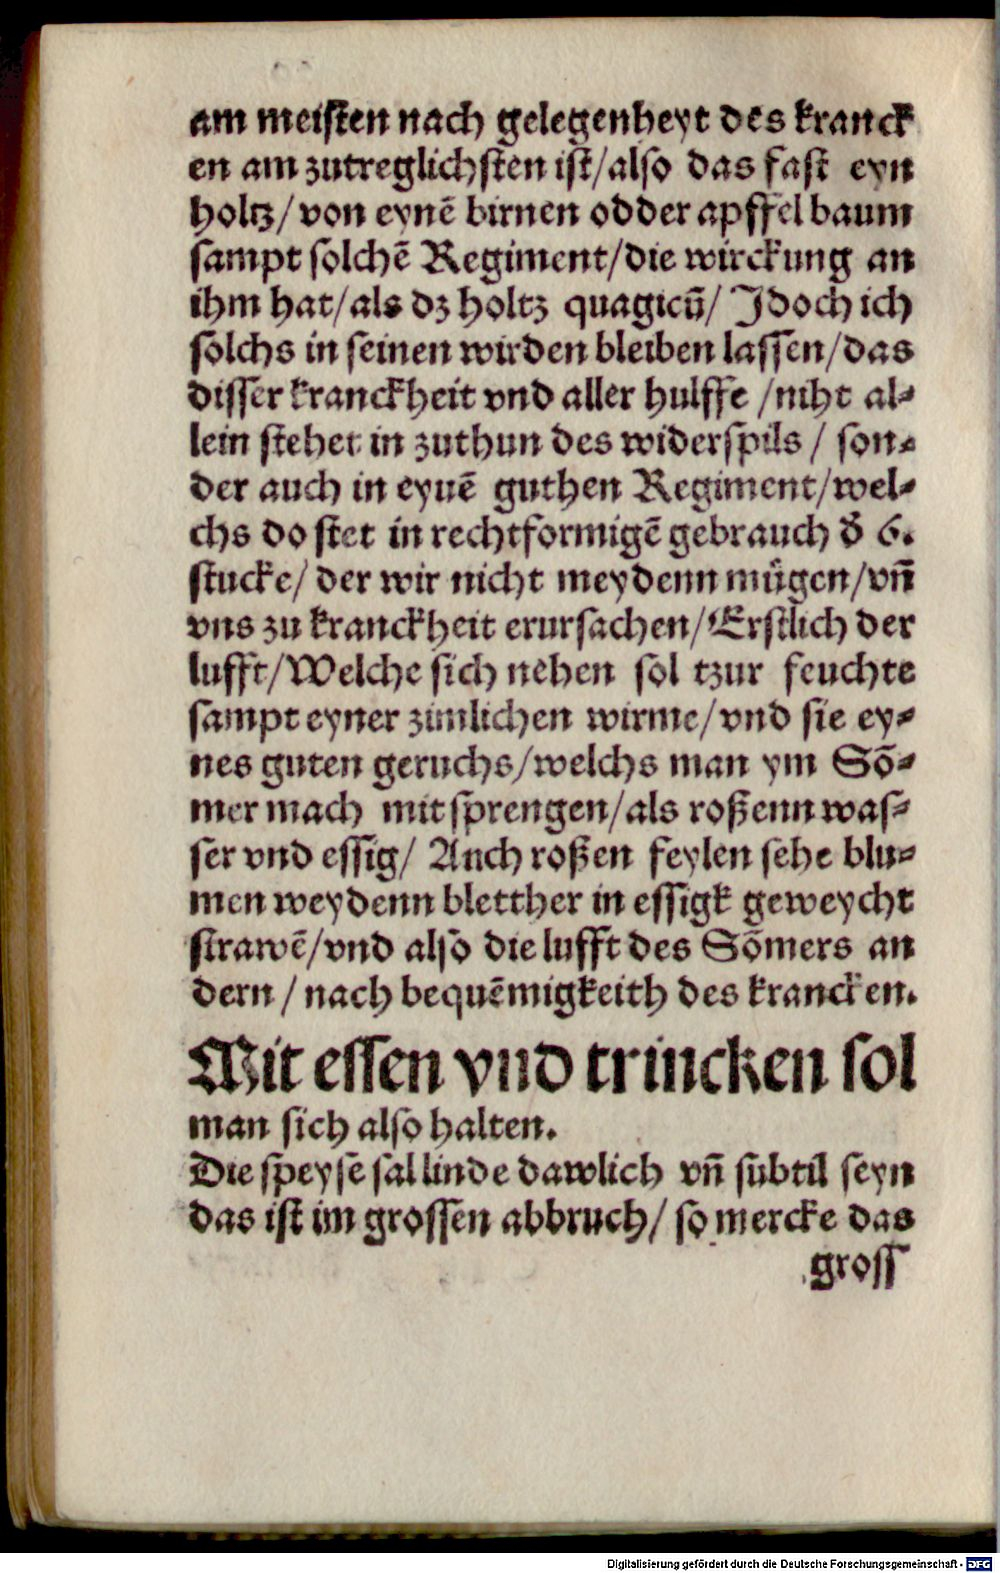 am meisten nach gelegenheyt des kranck
en am zutreglichsten ist/also das fast eyn
holtz/ von eynē birnen odder apffel baum
sampt solchē Regiment/die wirckung an
ihm hat/als dz holtz quagicū/ Jdoch ich
solchs in seinen wirden bleiben lassen/das
disser kranckheit vnd aller hulffe /niht al-
lein stehet in zuthun des widerspils / son-
der auch in eyuē guthen Regiment/wel-
chs do stet in rechtformigē gebrauch d̄ 6.
stucke/ der wir nicht meydenn mügen/vn̄
vns zu kranckheit erursachen/Erstlich der
lufft/Welche sich nehen sol tzur feuchte
sampt eyner zimlichen wirme/vnd sie ey-
nes guten geruchs/welchs man ym Sō-
mer mach mit sprengen/als roßenn was-
ser vnd essig/ Auch roßen feylen sehe blu-
men weydenn bletther in essigk geweycht
strawē/vnd also die lufft des Sōmers an
dern / nach bequēmigkeith des krancken.
Mit essen vnd trincken sol
man sich also halten.
Die speyse sal linde dawlich vn̄ subtil seyn
das ist im grossen abbruch/ so mercke das
gross
Digitalisierung gefördert durch die Deutsche Forschungsgemeinschaft - DFG